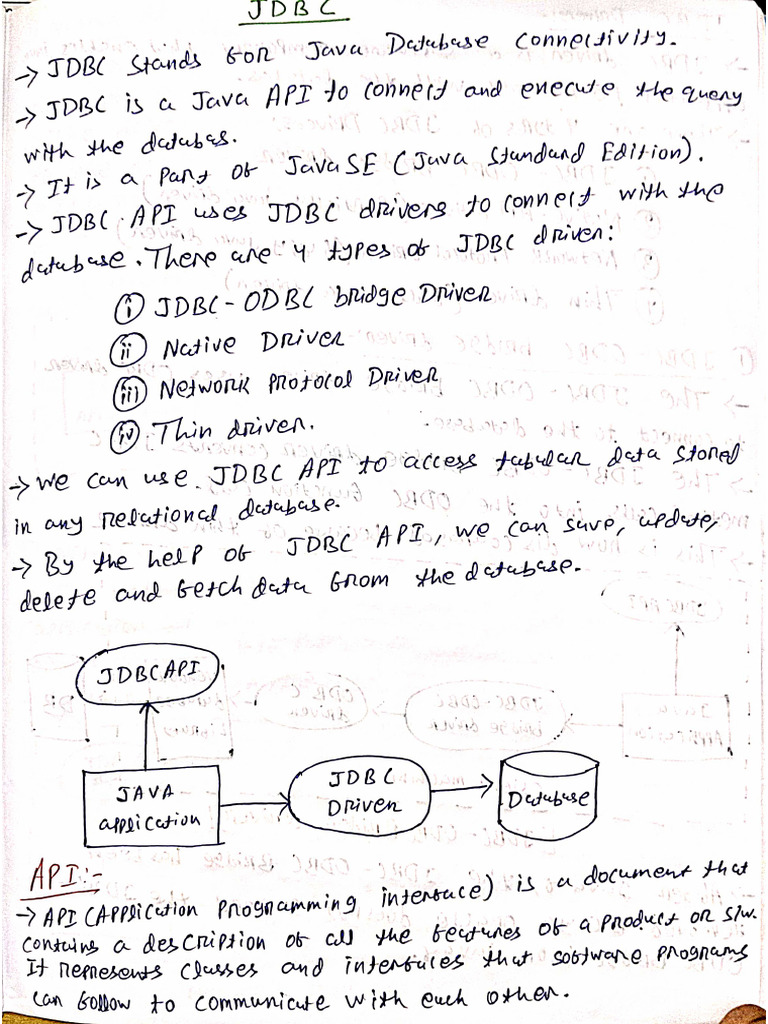 JDBC
→ JDBC stands for Java Database Connectivity.
→ JDBC is a Java API to connect and execute the query
with the databas.
→ It is a part of JavaSE (Java Standard Edition).
→ JDBC API uses JDBC drivers to connect with the
database. There are 4 types of JDBC driver:
(i) JDBC-ODBC bridge Driver
(ii) Native Driver
(iii) Network Protocol Driver
(iv) Thin driver.
→ We can use JDBC API to access tabular data stored
in any relational database.
→ By the help of JDBC API, we can save, update,
delete and fetch data from the database.
JDBC API
JAVA
application
JDBC
Driver
Database
API:-
→ API (Application Programming interface) is a document that
contains a description of all the features of a product or s/w.
It represents classes and interfaces that software programs
can follow to communicate with each other.